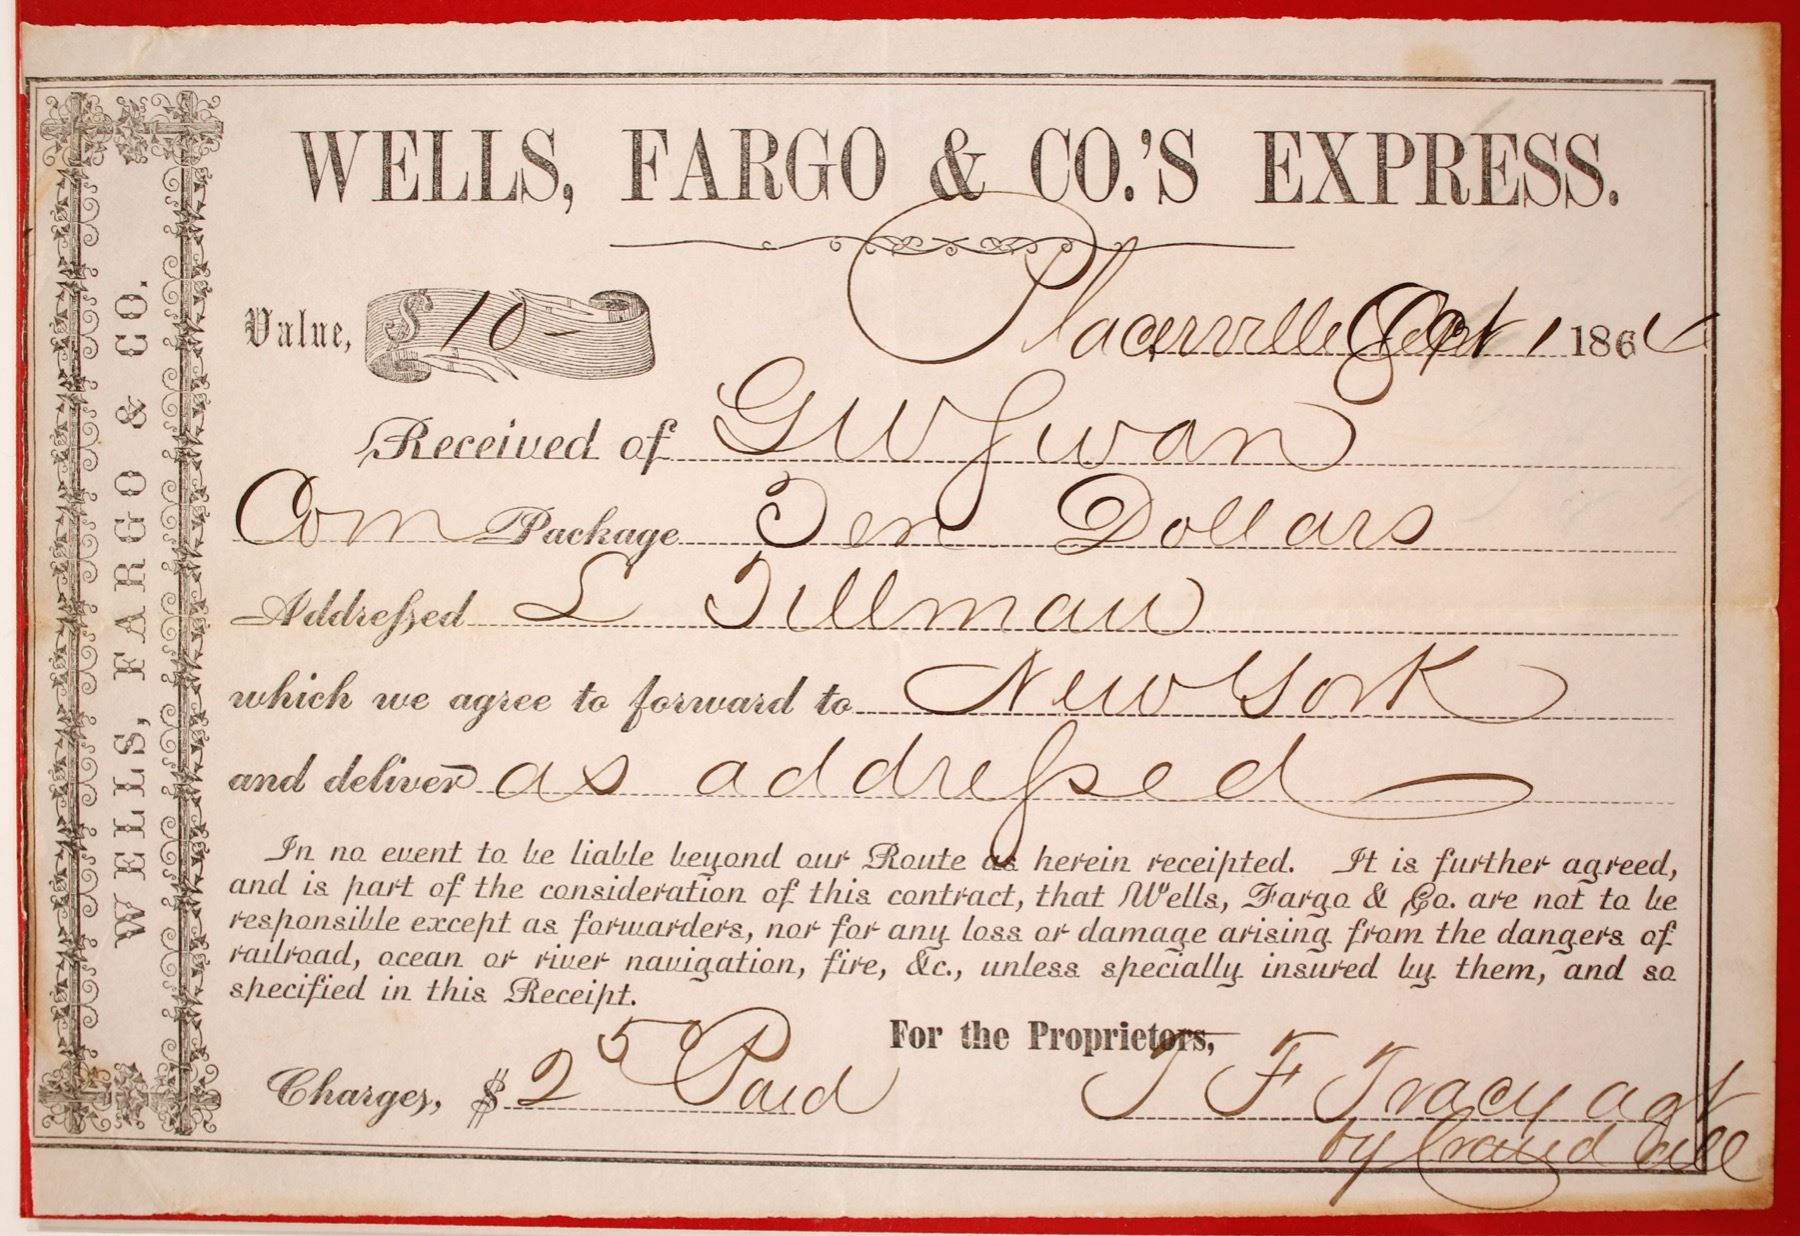 WELLS, FARGO & CO.
WELLS, FARGO & CO.'S EXPRESS.
Value, $10-
Placerville Sept 1 1864
Received of G W Swan
Com Package Ten Dollars
Addressed L Tillman
which we agree to forward to New York
and deliver as addressed
In no event to be liable beyond our Route as herein receipted. It is further agreed,
and is part of the consideration of this contract, that Wells, Fargo & Co. are not to be
responsible except as forwarders, nor for any loss or damage arising from the dangers of
railroad, ocean or river navigation, fire, &c., unless specially insured by them, and so
specified in this Receipt.
For the Proprietors,
Charges, $2 50 Paid
T F Tracy agt
by